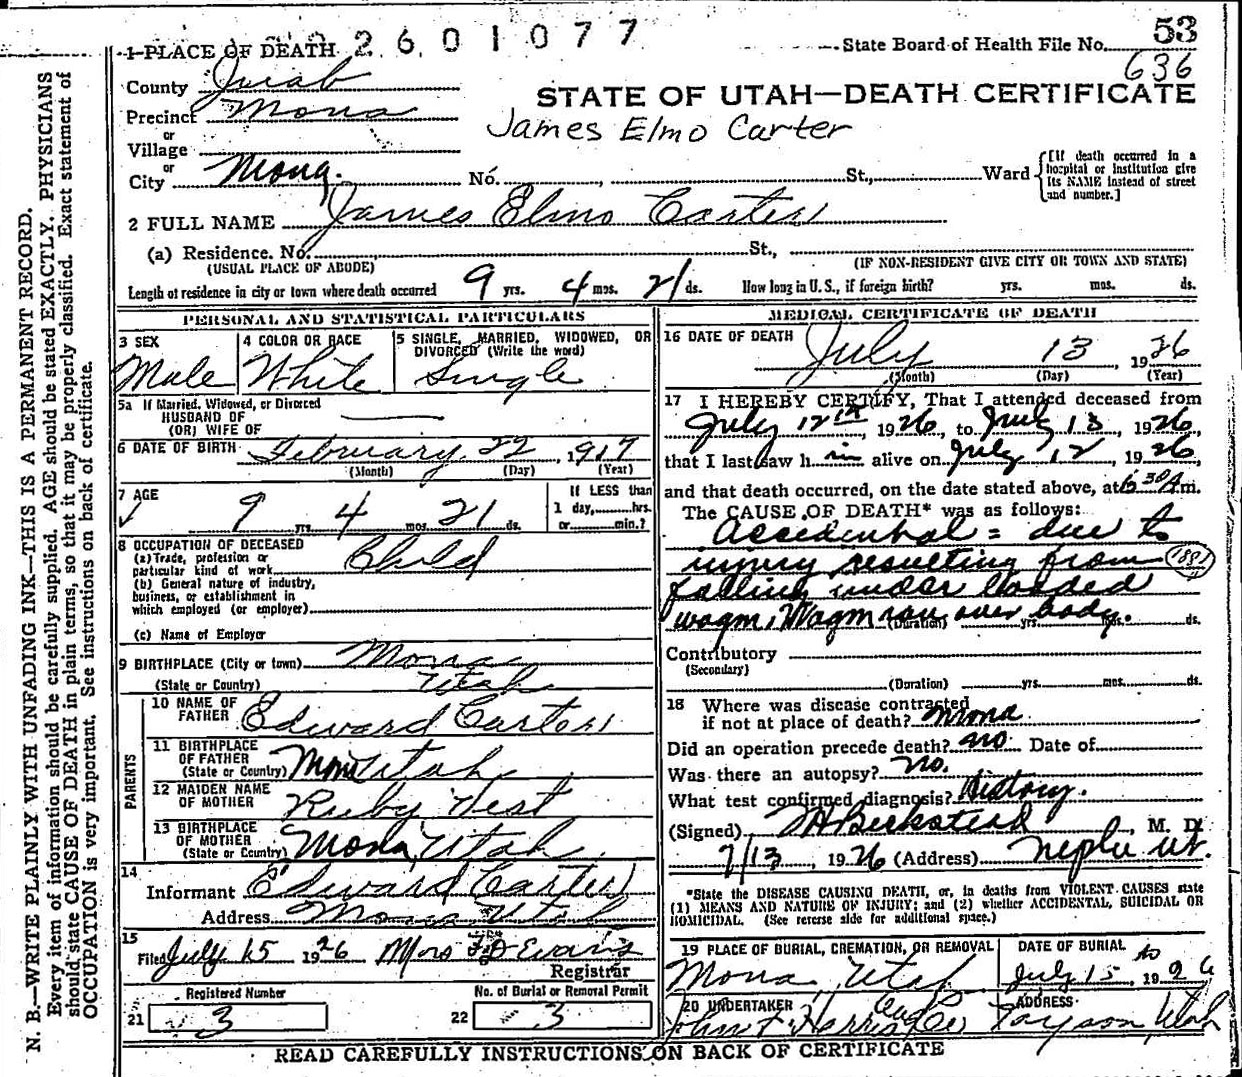 2601077
State Board of Health File No. 53
636
1 PLACE OF DEATH
County Juab
Precinct Mona
or
Village
or
City Mona. No. , St., Ward
[If death occurred in a hospital or institution give its NAME instead of street and number.]
STATE OF UTAH—DEATH CERTIFICATE
James Elmo Carter
2 FULL NAME James Elmo Carter
(a) Residence. No. St.,
(USUAL PLACE OF ABODE) (IF NON-RESIDENT GIVE CITY OR TOWN AND STATE)
Length of residence in city or town where death occurred 9 yrs. 4 mos. 21 ds. How long in U. S., if foreign birth? yrs. mos. ds.
PERSONAL AND STATISTICAL PARTICULARS
3 SEX
Male
4 COLOR OR RACE
White
5 SINGLE, MARRIED, WIDOWED, OR
DIVORCED (Write the word)
Single
5a If Married, Widowed, or Divorced
HUSBAND OF
(OR) WIFE OF
6 DATE OF BIRTH February 22, 1917
(Month) (Day) (Year)
7 AGE
9 yrs. 4 mos. 21 ds.
If LESS than
1 day, hrs.
or min.?
8 OCCUPATION OF DECEASED
(a) Trade, profession or
particular kind of work Child
(b) General nature of industry,
business, or establishment in
which employed (or employer)
(c) Name of Employer
9 BIRTHPLACE (City or town) Mona
(State or Country) Utah
PARENTS
10 NAME OF
FATHER Edward Carter
11 BIRTHPLACE
OF FATHER
(State or Country) Mona Utah
12 MAIDEN NAME
OF MOTHER Ruby West
13 BIRTHPLACE
OF MOTHER
(State or Country) Mona, Utah
14
Informant Edward Carter
Address Mona Utah
15
Filed July 15 1926 Mrs D Evans
Registrar
Registered Number
21 3
No. of Burial or Removal Permit
22 3
MEDICAL CERTIFICATE OF DEATH
16 DATE OF DEATH July 13 1926
(Month) (Day) (Year)
17 I HEREBY CERTIFY, That I attended deceased from
July 12th, 1926, to July 13, 1926,
that I last saw him alive on July 12, 1926,
and that death occurred, on the date stated above, at 6 30 A m.
The CAUSE OF DEATH* was as follows:
Accidental = due to
injury resulting from
falling under loaded
wagon, Wagon ran over body.
(Duration) yrs. mos. ds.
Contributory
(Secondary)
(Duration) yrs. mos. ds.
18 Where was disease contracted
if not at place of death? Mona
Did an operation precede death? no Date of
Was there an autopsy? No.
What test confirmed diagnosis? History.
(Signed) Beckstead, M. D.
7/13, 1926 (Address) Nephi Ut.
*State the DISEASE CAUSING DEATH, or, in deaths from VIOLENT CAUSES state
(1) MEANS AND NATURE OF INJURY; and (2) whether ACCIDENTAL, SUICIDAL OR
HOMICIDAL. (See reverse side for additional space.)
19 PLACE OF BURIAL, CREMATION, OR REMOVAL
Mona, Utah
DATE OF BURIAL
July 15, 1926
20 UNDERTAKER
John
ADDRESS
Payson, Utah
READ CAREFULLY INSTRUCTIONS ON BACK OF CERTIFICATE
N. B.—WRITE PLAINLY WITH UNFADING INK—THIS IS A PERMANENT RECORD.
Every item of information should be carefully supplied. AGE should be stated EXACTLY. PHYSICIANS
should state CAUSE OF DEATH in plain terms, so that it may be properly classified. Exact statement of
OCCUPATION is very important. See instructions on back of certificate.